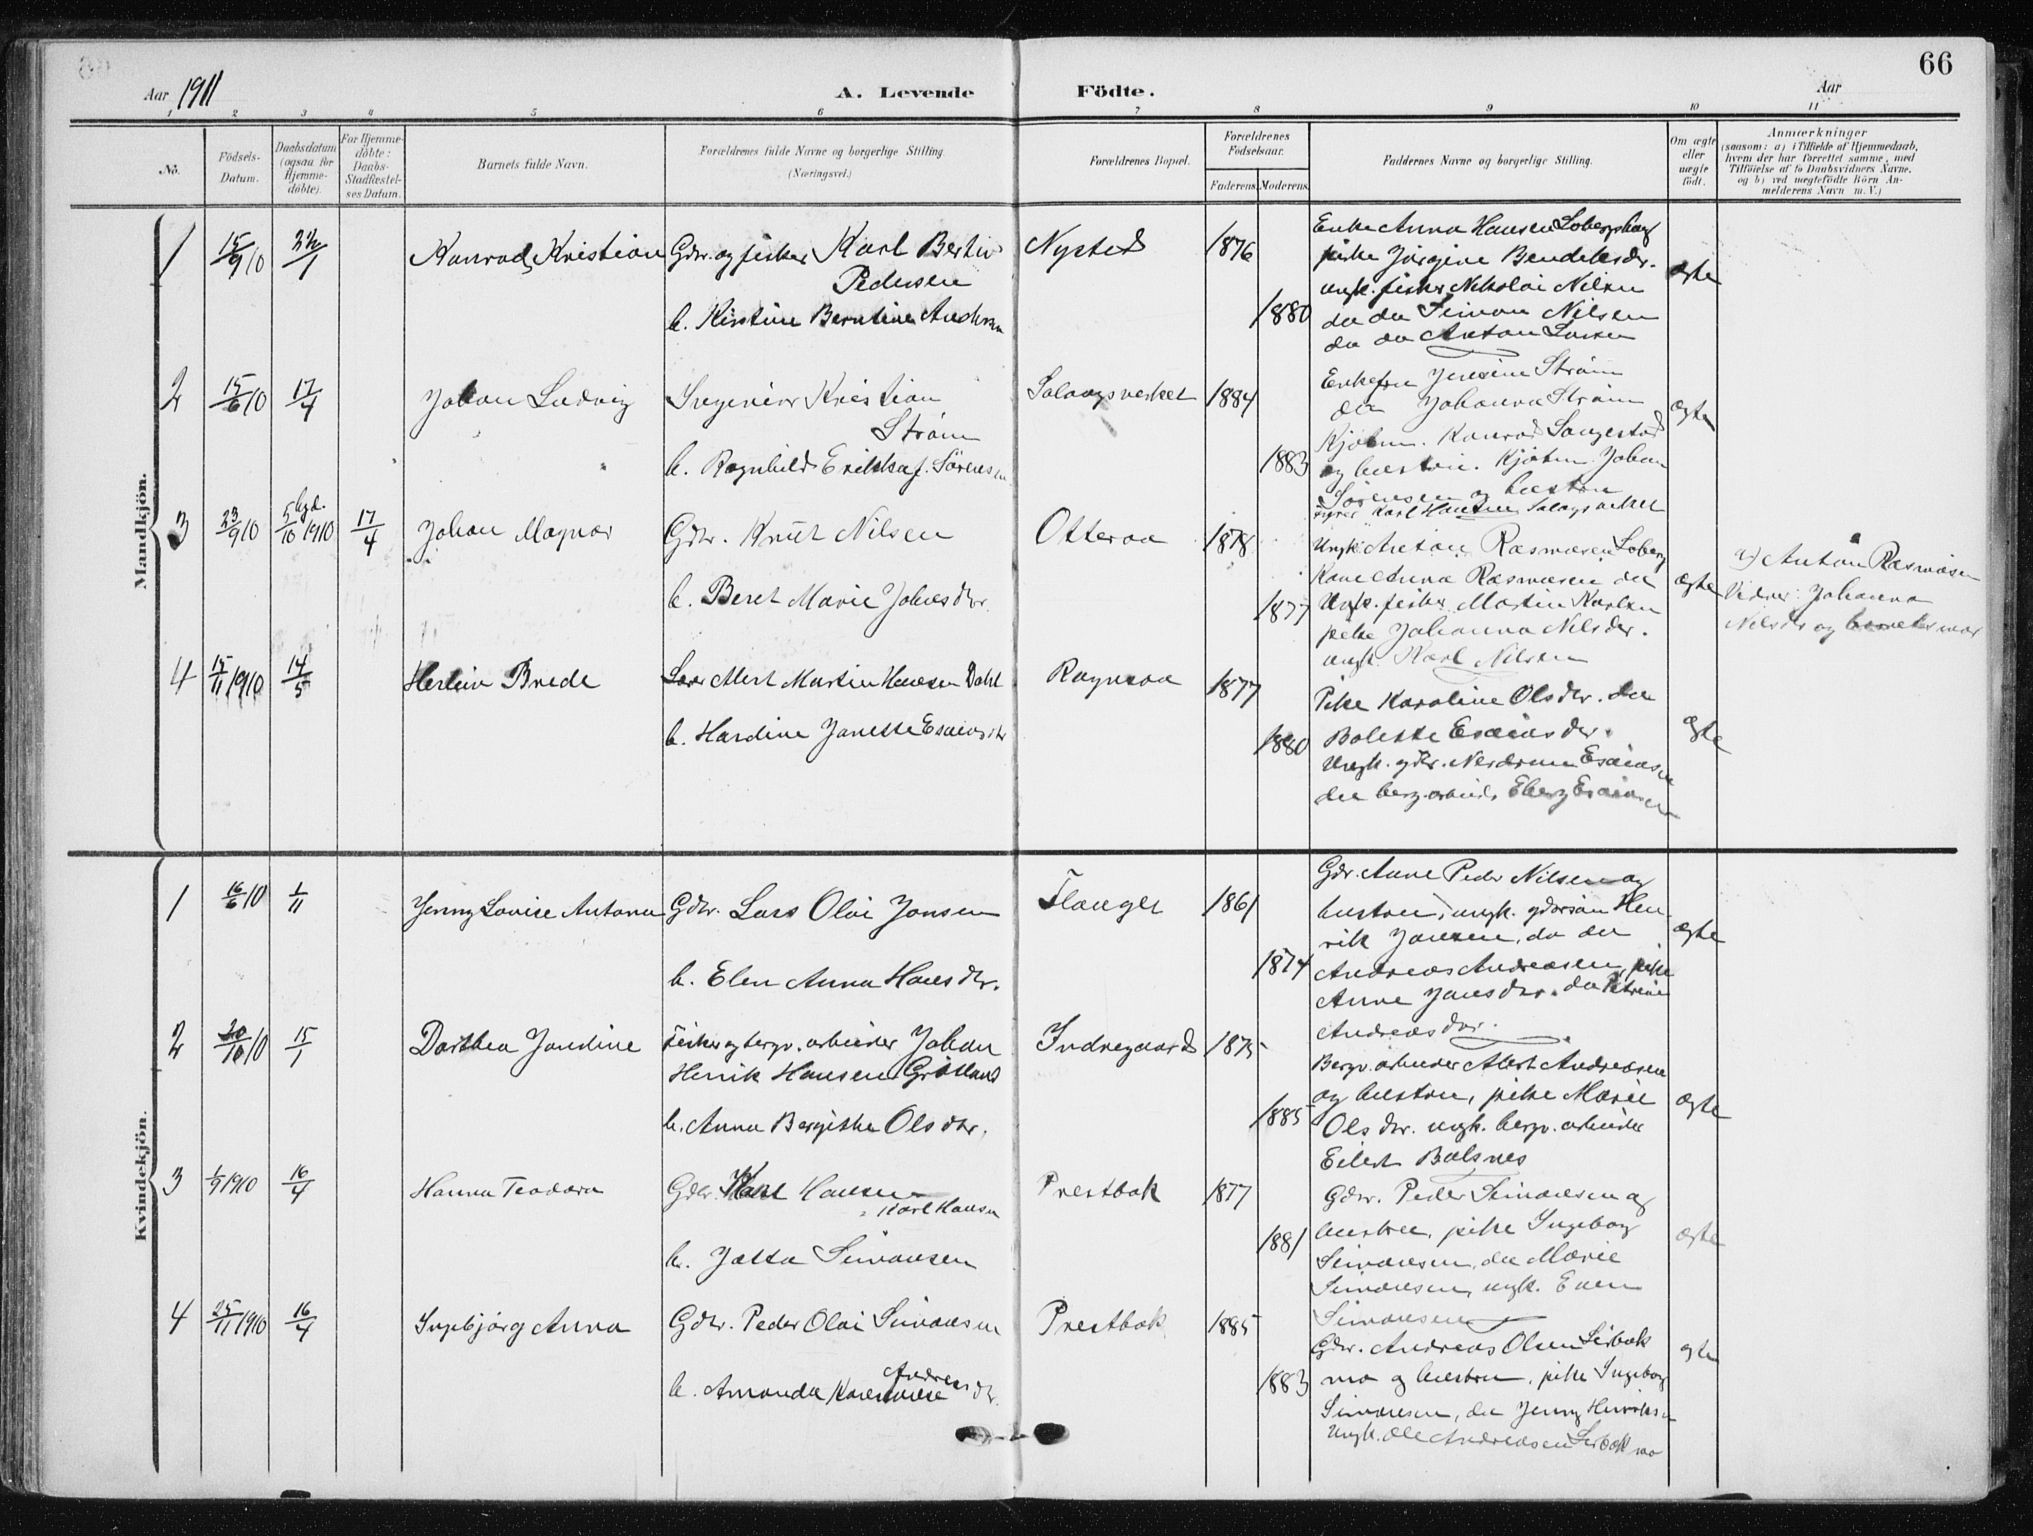 66
Aar 1911
A. Levende Födte.
Aar
1 2 3 4 5 6 7 8 9 10 11
No.
Födsels-Datum.
Daabsdatum (ogsaa for Hjemme-döbte).
For Hjemme-döbte: Daabs-Stadfæstel-ses Datum.
Barnets fulde Navn.
Forældrenes fulde Navne og borgerlige Stilling.
(Næringsvei.)
Forældrenes Bopæl.
Forældrenes Födselsaar.
Faderens. Moderens.
Faddernes Navne og borgerlige Stilling.
Om ægte eller uægte födt.
Anmærkninger
(saasom: a) i Tilfælde af Hjemmedaab,
hvem der har forrettet samme, med
Tilföielse af to Daabsvidners Navne.
og b) ved uægtefödte Börn An-
melderens Navn m. V.)
Mandkjön.
1 15/9 10 Konrad Kristian Gdbr. og fisker Karl Bertin Pedersen
b. Kirstine Berntine Andersen
Nysted 1876 1880
Enke Anna Hansen Lobergshag
pike Jörgine Bendiksdr.
ungk. fisker Nikolai Nilsen
do do Simon Nilsen
do do Anton Larsen
ægte
2 15/6 10 17/4 Johan Ludvig Ingeniör Kristian Ström
b. Ragnhild Erikka f. Sörensen
Salangsverket 1884 1883
Enkefru Jensine Ström
do Johanna Ström
Kjöbm. Konrad Langestad
og hustru. Kjöbm. Johan
Sörensen og hustru
Karl Hansen Salangsverket
ægte
3 23/9 10 5/10 1910 17/4 Johan Magnar Gdbr. Knut Nilsen
b. Beret Marie Johnsdtr.
Otteraa 1878 1877
Ungk. Anton Rasmusen Loberg
Kone Anna Rasmusen do
Ungk. fisker Martin Karlsen
pike Johanna Nilsdtr.
ungk. Karl Nilsen
ægte
a) Anton Rasmusen
Vidner: Johanna
Nilsdtr og barnets mor
4 15/11 1910 14/5 Herleiv Brede Albert Martin Hansen Dahl
b. Hardine Janette Esaiasdtr
Rognaa 1877 1880
Pike Karoline Olsdtr. do
Bolette Esaiasdtr.
Ungk. gdbr. Nerdrum Esaiassen
do bergv.arbeid. Eberg Esaiassen
ægte
Kvindekjön.
1 16/6 10 1/11 Jenny Lovise Antona Gdbr. Lars Olai Jensen
b. Elen Anna Hansdtr.
Flanget 1861 1874
Gdr. Anne Peder Nilsen og
hustru, ungk. gdbrsön Hen-
rik Jensen, do do
Andreas Andreasen, pike
Anne Jensdtr. do Petrine
Andreasdtr.
ægte
2 20/10 10 15/1 Dorthea Jordine Fisker og bergv. arbeider Johan
Henrik Hansen Grötland
b. Anna Bergitte Olsdtr.
Indregaard 1875 1885
Bergv. arbeider Albert Andreasen
og hustru, pike Marie
Olsdtr. ungk. bergv. arbeider
Eilert Balsnes
ægte
3 1/9 1910 16/4 Hanna Teodora Gdbr. Karl Hansen
Karl Hansen
b. Jetta Simonsen
Prestbak 1877 1881
Gdbr. Peder Simonsen og
hustru, pike Ingeborg
Simonsen, do Marie
Simonsen, ungk. Even
Simonsen
ægte
4 25/11 1910 16/4 Ingebjörg Anna Gdbr. Peder Olai Simonsen
b. Amanda Karenanne Andreasdtr.
Prestbak 1885 1883
Gdbr. Andreas Olsen Lirbak
mo og hustru, pike Ingeborg
Simonsen, do Jenny Henriksen
Ungk. Ole Andreasen Lirbak mo
ægte